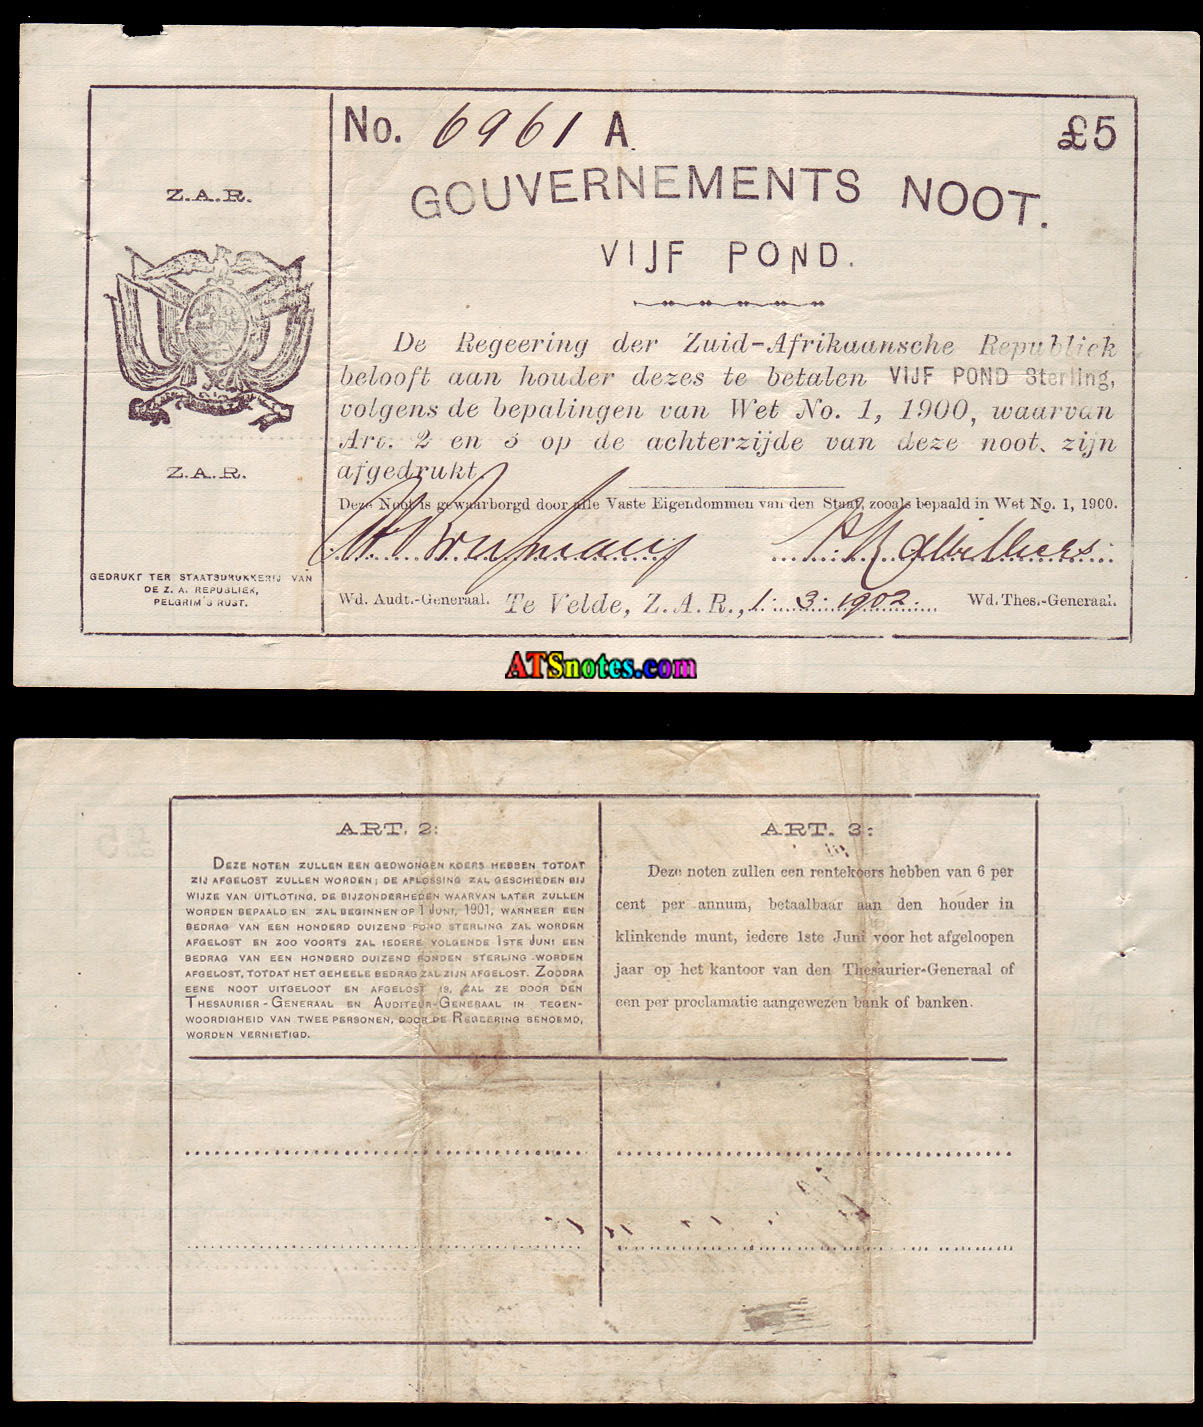 No. 6961 A.
£5
GOUVERNEMENTS NOOT.
VIJF POND.
De Regeering der Zuid-Afrikaansche Republiek
belooft aan houder dezes te betalen VIJF POND Sterling,
volgens de bepalingen van Wet No. 1, 1900, waarvan
Art. 2 en 3 op de achterzijde van deze noot zijn
afgedrukt
Deze Noot is gewaarborgd door alle Vaste Eigendommen van den Staat, zooals bepaald in Wet No. 1, 1900.
Wd. Audt.-Generaal. Te Velde, Z.A.R., 1. 3. 1902. Wd. Thes.-Generaal.
Z.A.R.
Z.A.R.
GEDRUKT TER STAATSDRUKKERIJ VAN
DE Z. A. REPUBLIEK,
PELGRIM'S RUST.
ATSnotes.com
ART. 2:
DEZE NOTEN ZULLEN EEN GEDWONGEN KOERS HEBBEN TOTDAT
ZIJ AFGELOST ZULLEN WORDEN; DE AFLOSSING ZAL GESCHIEDEN BIJ
WIJZE VAN UITLOTING, DE BIJZONDERHEDEN WAARVAN LATER ZULLEN
WORDEN BEPAALD EN ZAL BEGINNEN OP 1 JUNI, 1901, WANNEER EEN
BEDRAG VAN EEN HONDERD DUIZEND POND STERLING ZAL WORDEN
AFGELOST EN ZOO VOORTS ZAL IEDERE VOLGENDE 1STE JUNI EEN
BEDRAG VAN EEN HONDERD DUIZEND PONDEN STERLING WORDEN
AFGELOST, TOTDAT HET GEHEELE BEDRAG ZAL ZIJN AFGELOST. ZOODRA
EENE NOOT UITGELOOT EN AFGELOST IS, ZAL ZE DOOR DEN
THESAURIER-GENERAAL EN AUDITEUR-GENERAAL IN TEGEN-
WOORDIGHEID VAN TWEE PERSONEN, DOOR DE REGEERING BENOEMD,
WORDEN VERNIETIGD.
ART. 3:
Deze noten zullen een rentekoers hebben van 6 per
cent per annum, betaalbaar aan den houder in
klinkende munt, iedere 1ste Juni voor het afgeloopen
jaar op het kantoor van den Thesaurier-Generaal of
een per proclamatie aangewezen bank of banken.